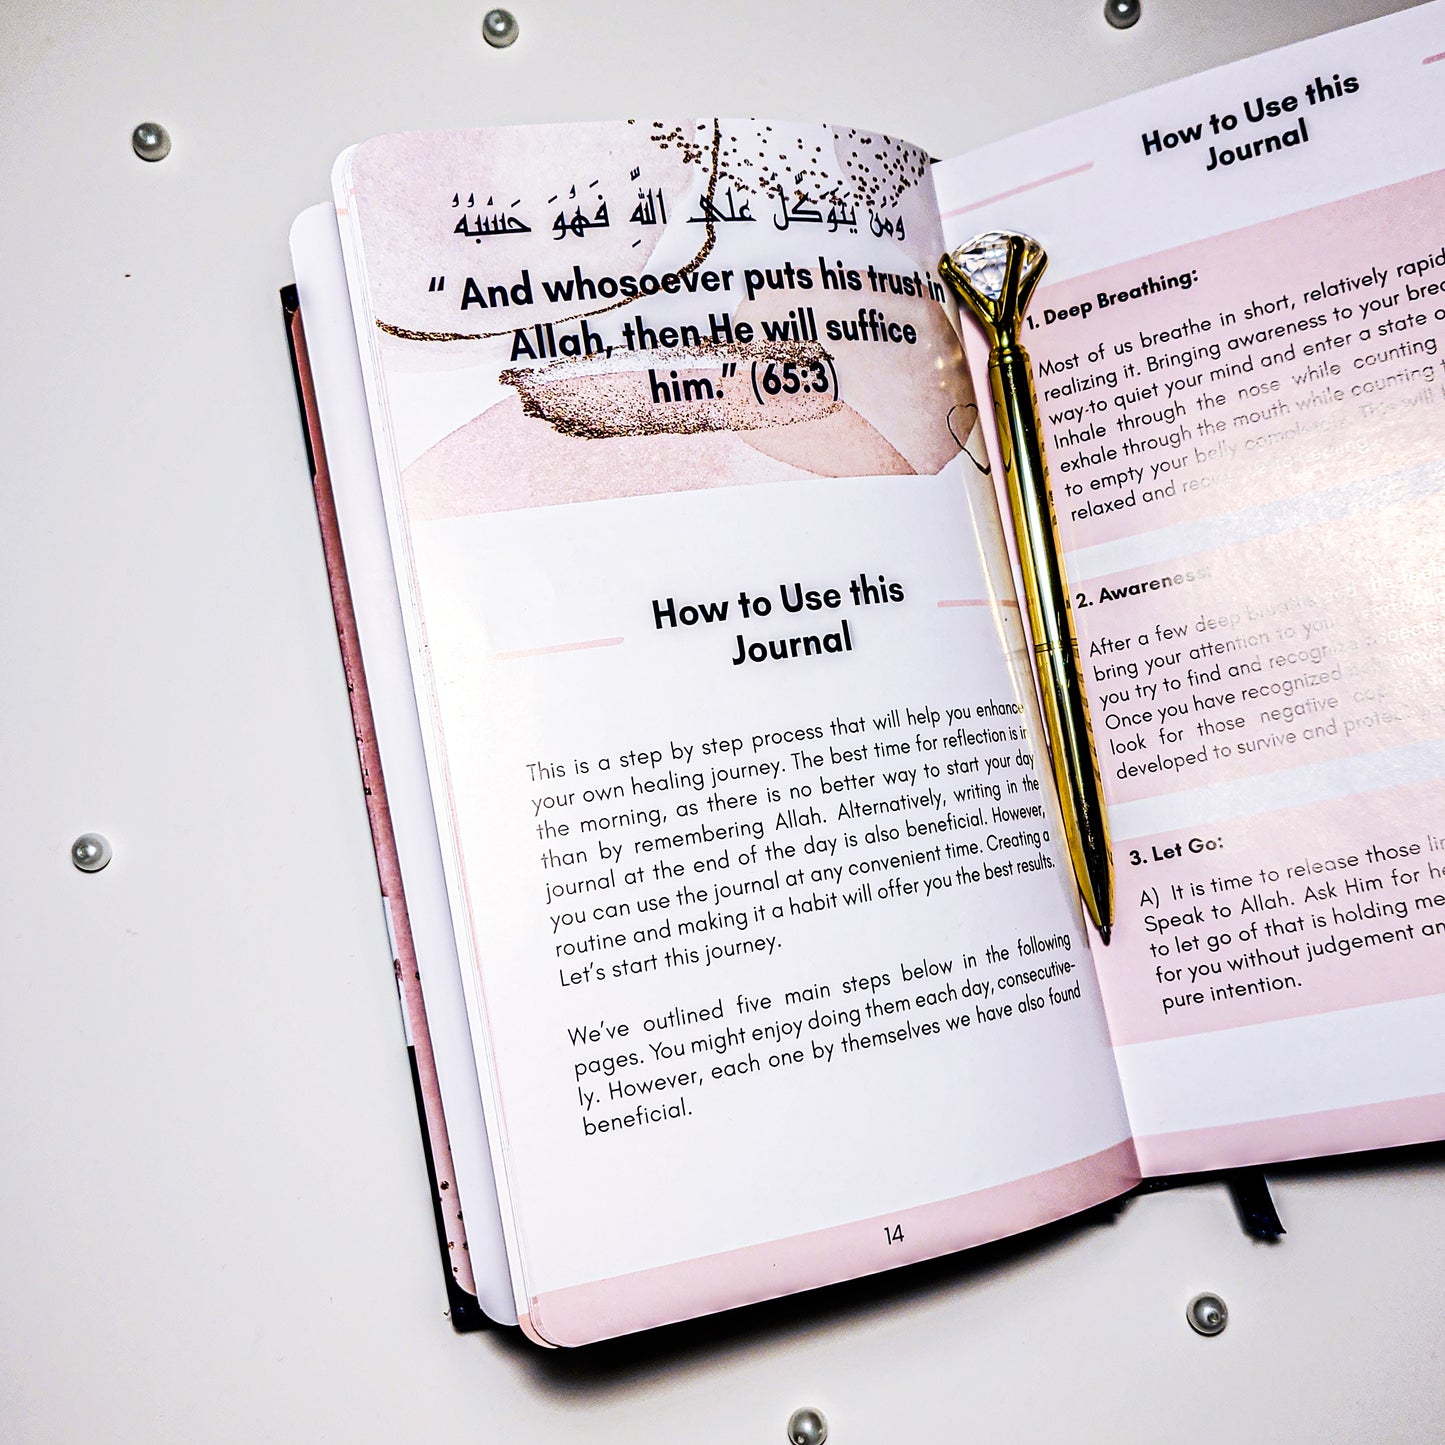 وَمَن يَتَوَكَّلْ عَلَى اللَّهِ فَهُوَ حَسْبُهُ
“ And whosoever puts his trust in
Allah, then He will suffice
him.” (65:3)
How to Use this
Journal
This is a step by step process that will help you enhance
your own healing journey. The best time for reflection is in
the morning, as there is no better way to start your day
than by remembering Allah. Alternatively, writing in the
journal at the end of the day is also beneficial. However,
you can use the journal at any convenient time. Creating a
routine and making it a habit will offer you the best results.
Let’s start this journey.
We’ve outlined five main steps below in the following
pages. You might enjoy doing them each day, consecutive-
ly. However, each one by themselves we have also found
beneficial.
14
How to Use this
Journal
1. Deep Breathing:
Most of us breathe in short, relatively rapid
realizing it. Bringing awareness to your
way to quiet your mind and enter a state
Inhale through the nose while counting
exhale through the mouth while counting
to empty your belly This will
relaxed and
2. Awareness:
After a few deep
bring your attention to
you try to find and recognize
Once you have recognized
look for those negative
developed to survive and
3. Let Go:
A) It is time to release those
Speak to Allah. Ask Him for
to let go of that is holding me
for you without judgement
pure intention.